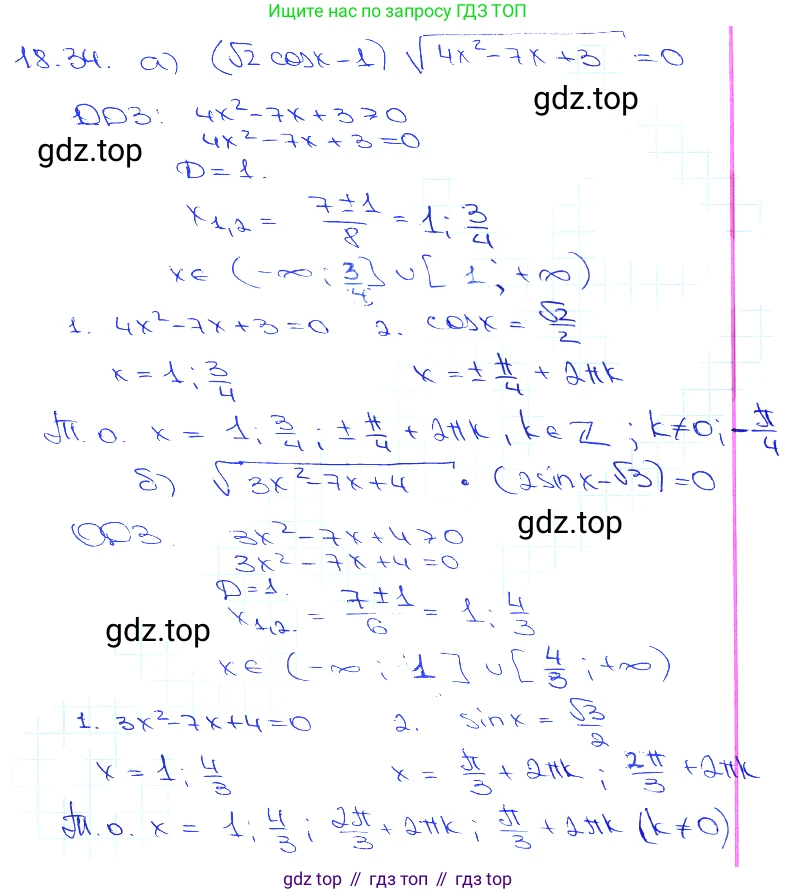 Ищите нас по запросу ГДЗ ТОП
18.34. а) (√2 cosx − 1) √4x² − 7x + 3 = 0
ОДЗ: 4x² − 7x + 3 ≥ 0
gdz.top
4x² − 7x + 3 = 0
gdz.top
D = 1.
x₁,₂ = (7 ± 1)/8 = 1; 3/4
x ∈ (−∞; 3/4] ∪ [1; +∞)
1. 4x² − 7x + 3 = 0 2. cosx = √2/2
x = 1; 3/4 x = ± π/4 + 2πk
Т. о. x = 1; 3/4; ± π/4 + 2πk, k ∈ Z; k ≠ 0; − π/4
б) √3x² − 7x + 4 · (2sinx − √3) = 0
ОДЗ. 3x² − 7x + 4 ≥ 0
gdz.top
3x² − 7x + 4 = 0
D = 1.
x₁,₂. = (7 ± 1)/6 = 1; 4/3
gdz.top
x ∈ (−∞; 1] ∪ [4/3; +∞)
1. 3x² − 7x + 4 = 0 2. sinx = √3/2
x = 1; 4/3 x = π/3 + 2πk; 2π/3 + 2πk
Т. о. x = 1; 4/3; 2π/3 + 2πk; π/3 + 2πk (k ≠ 0)
gdz top // гдз топ // gdz top